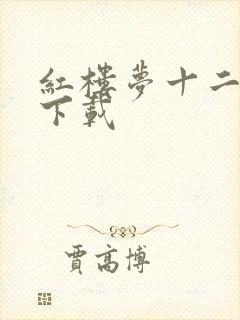 紅樓夢十二
下載
賈高博